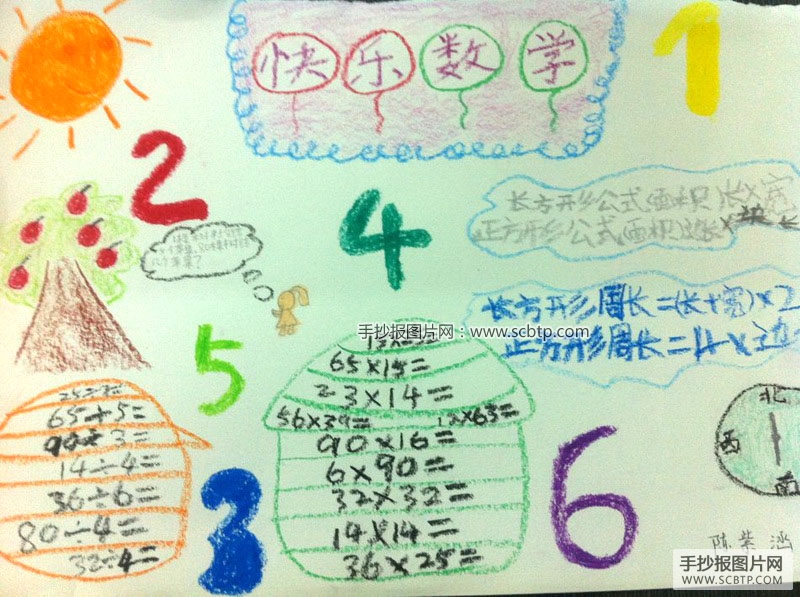 快乐数学
1
2
4
长方形公式面积 长×宽
正方形公式面积 边长×边长
长方形周长=(长+宽)×2
正方形周长=4×边
手抄报图片网:www.scbtp.com
5
65×15=
23×14=
56×39= 12×63=
90×16=
6×90=
32×32=
14×14=
36×25=
65÷5=
90÷3=
14÷4=
36÷6=
80÷4=
32÷4=
3
6
北
西
南
手抄报图片网
WWW.SCBTP.COM